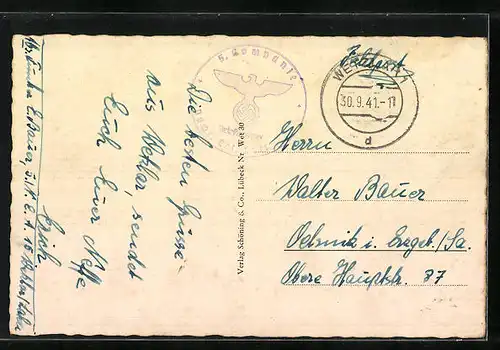 Feldpost
5. Kompanie
WETZLAR 1
30.9.41.-11
d
Herrn
Walter Bauer
Oelsnitz i. Erzgeb./Sa.
Obere Hauptstr. 87
Verlag Schöning & Co., Lübeck Nr. Wet 30
Die besten Grüsse
aus Wetzlar, sendet
Euch Euer Neffe
Erich